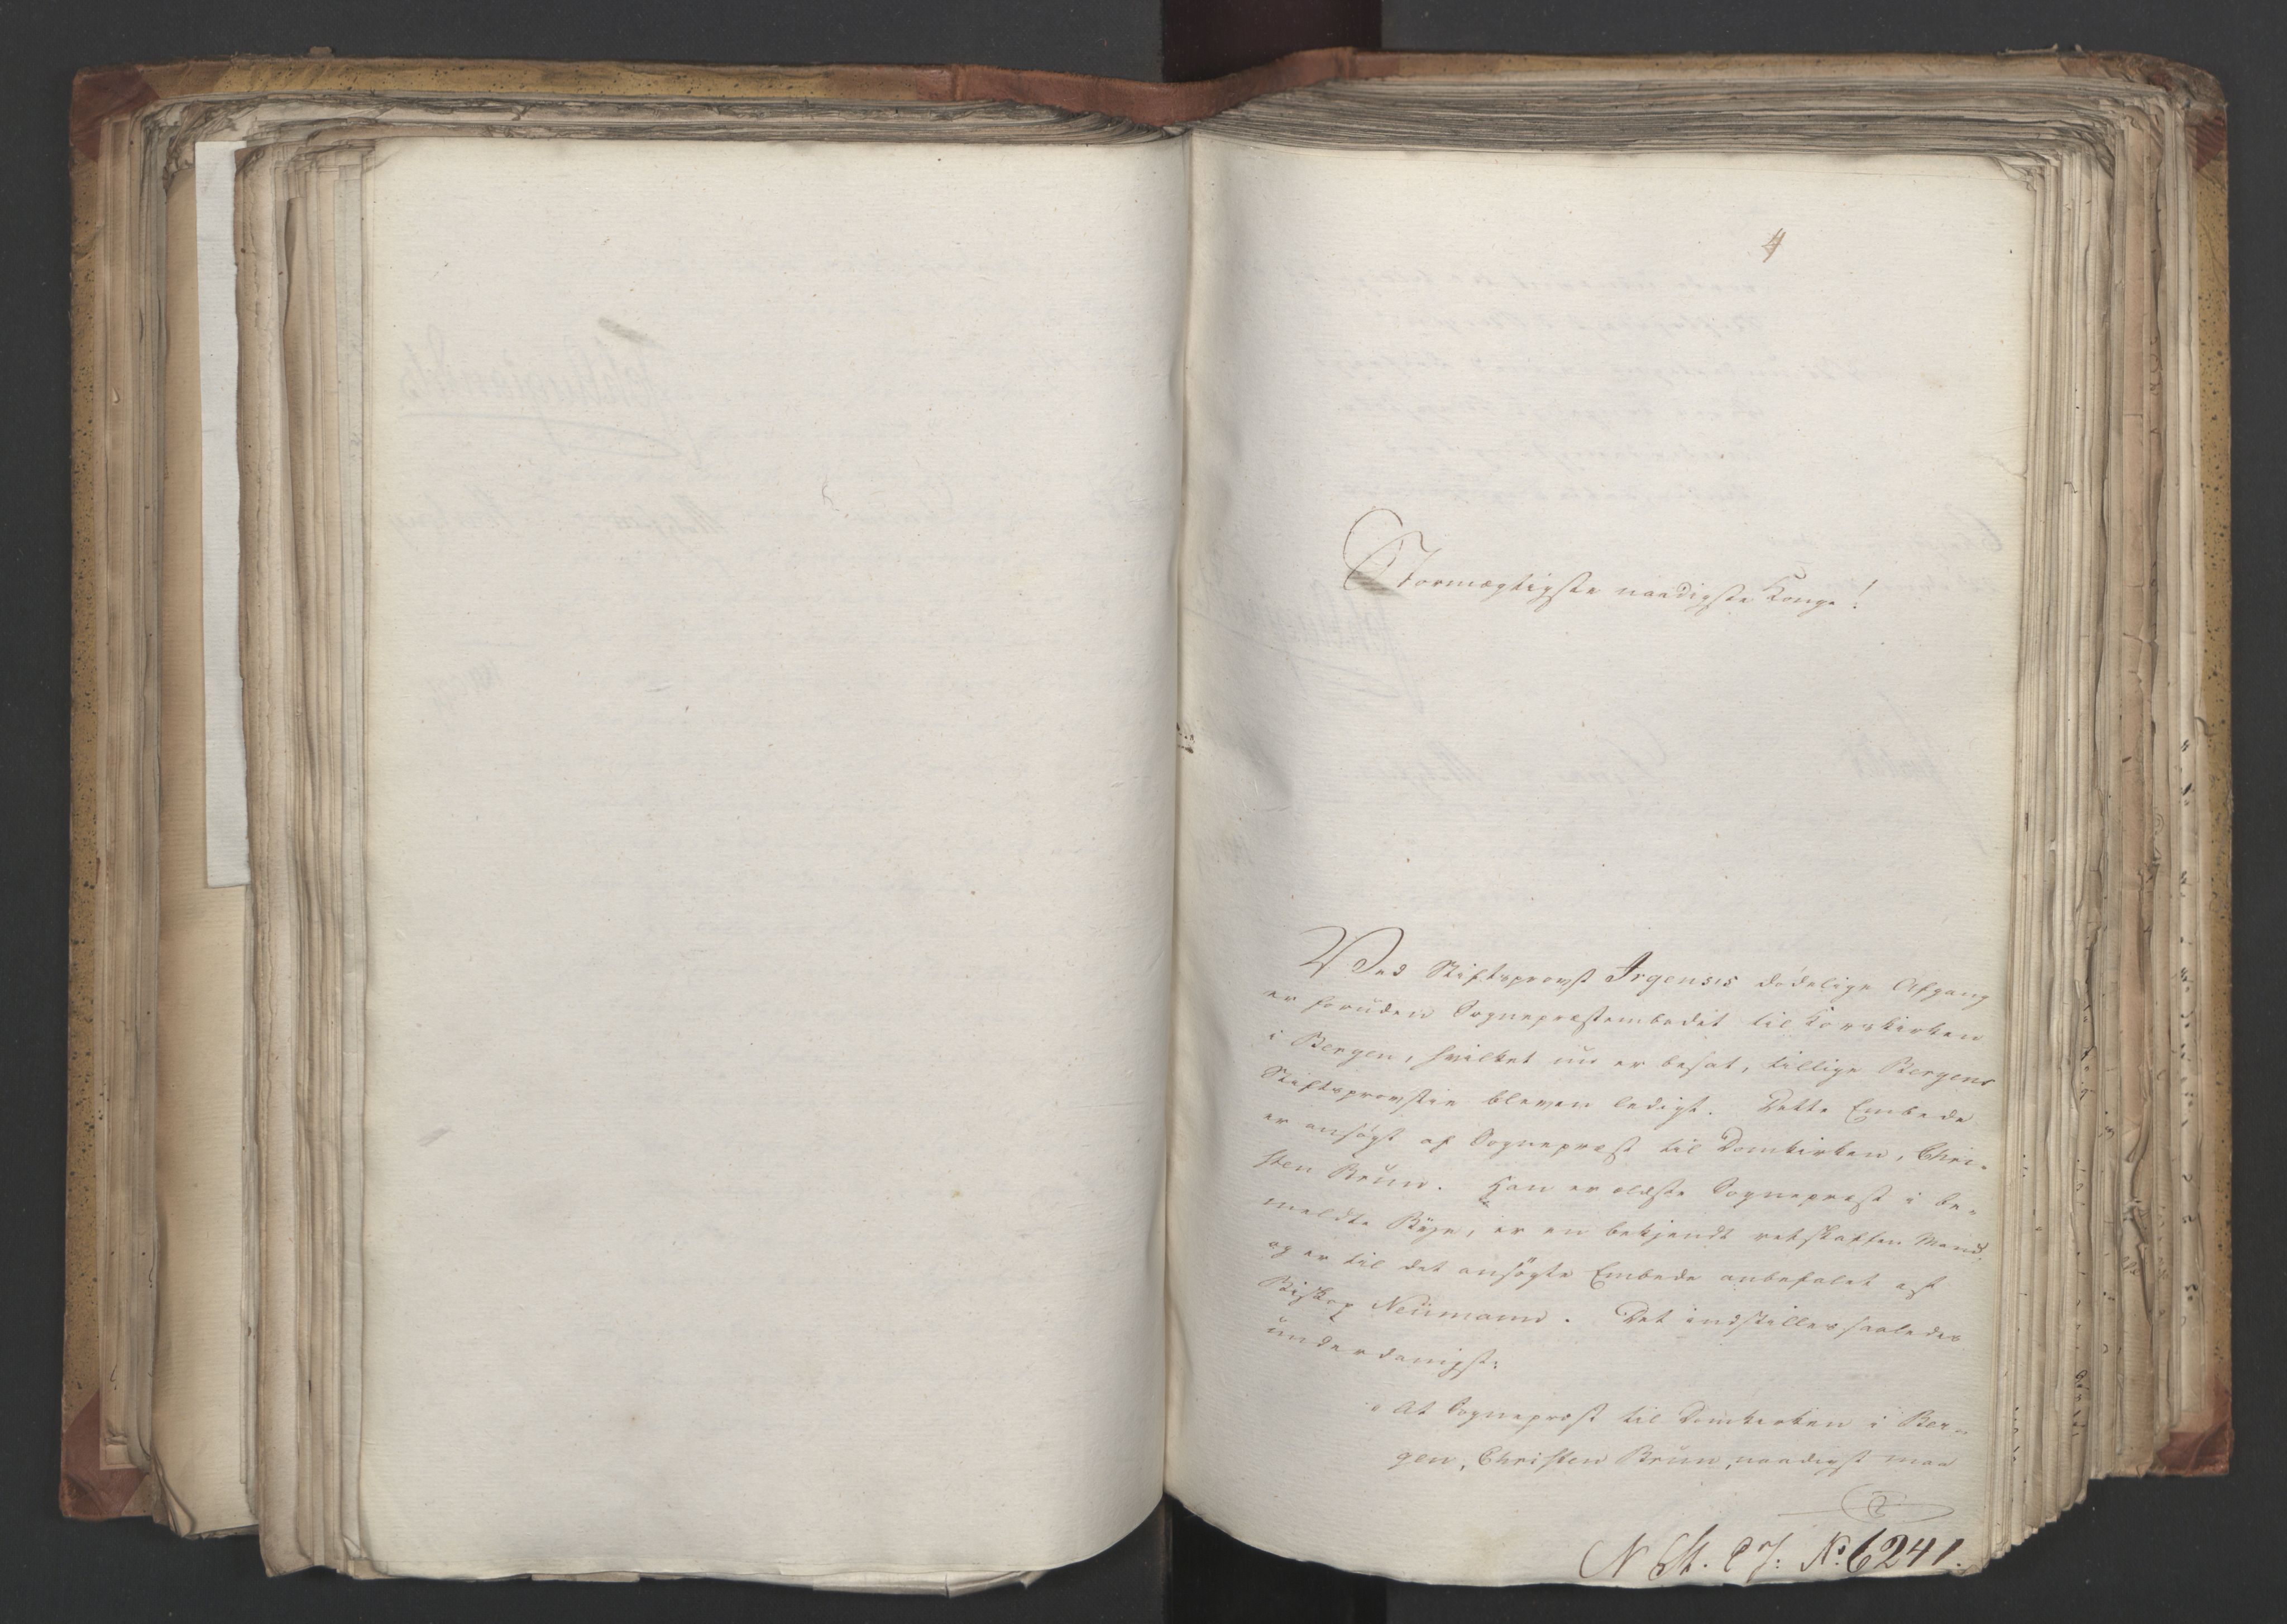 4
Stormægtigste naadigste Konge!
Ved Stiftsprovst Irgens's dödelige Afgang
er foruden Sognepræstembedet til Korskirken
i Bergen, hvilket nu er besat, tillige Bergens
Stiftsprovstie bleven ledigt. Dette Embede
er ansögt af Sognepræst til Domkirken, Chri-
sten Brun. Han er ældste Sognepræst i be-
meldte Bye, er en bekjendt retskaffen Mand
og er til det ansögte Embede anbefalet af
Biskop Neumann. Det indstilles saaledes
underdanigst:
At Sognepræst til Domkirken i Ber-
gen, Christen Brun, naadigst maa
No 6241.